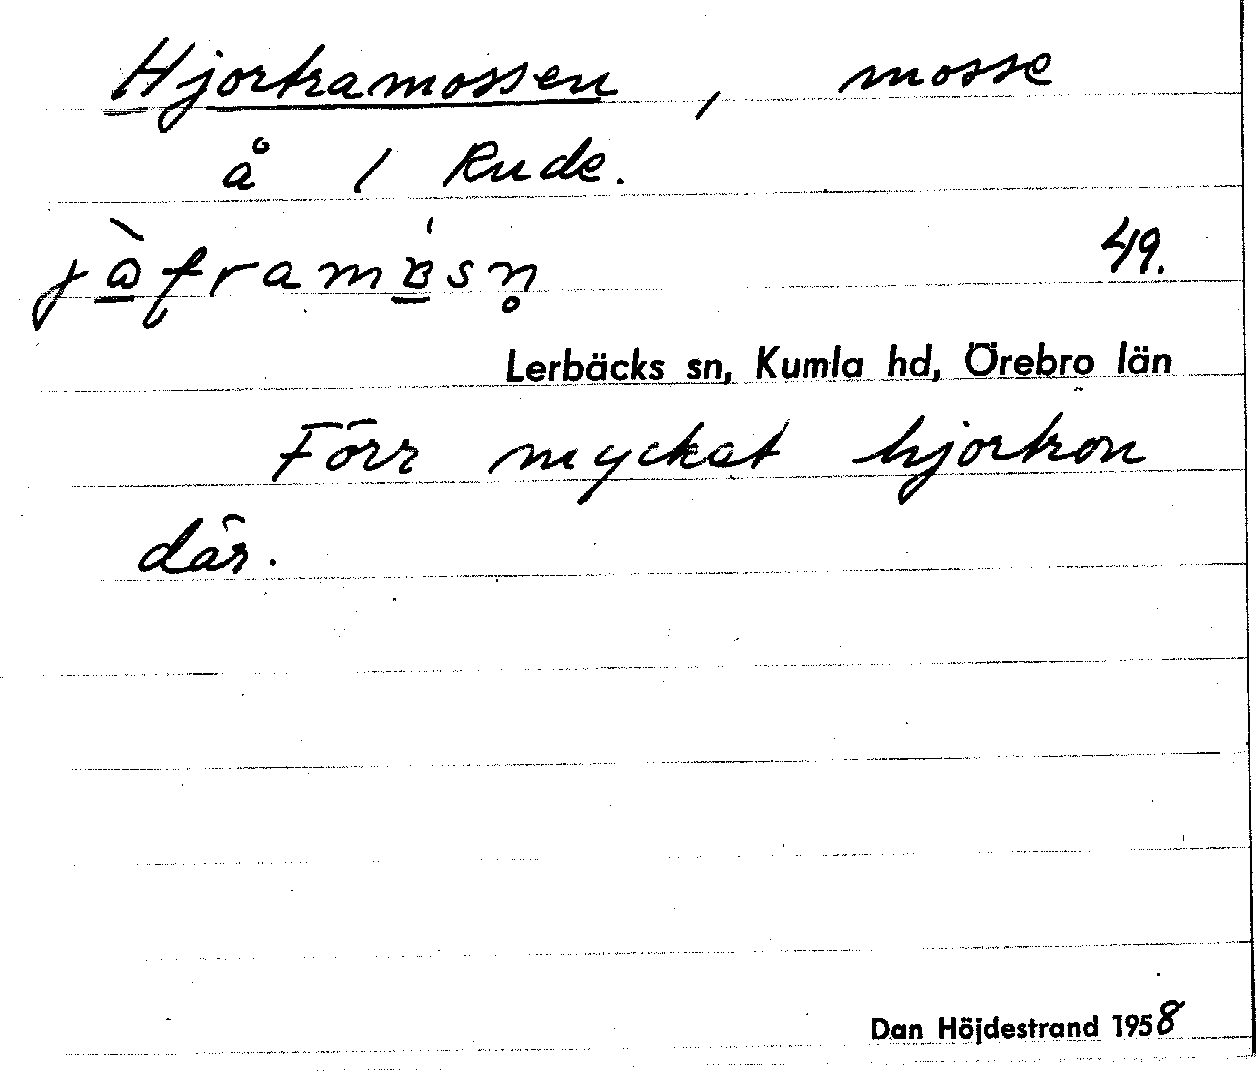 Hjortramossen, mosse
å 1 Rude.
jòframɞsn̥ 49.
Lerbäcks sn, Kumla hd, Örebro län
Förr mycket hjortron
där.
Dan Höjdestrand 1958